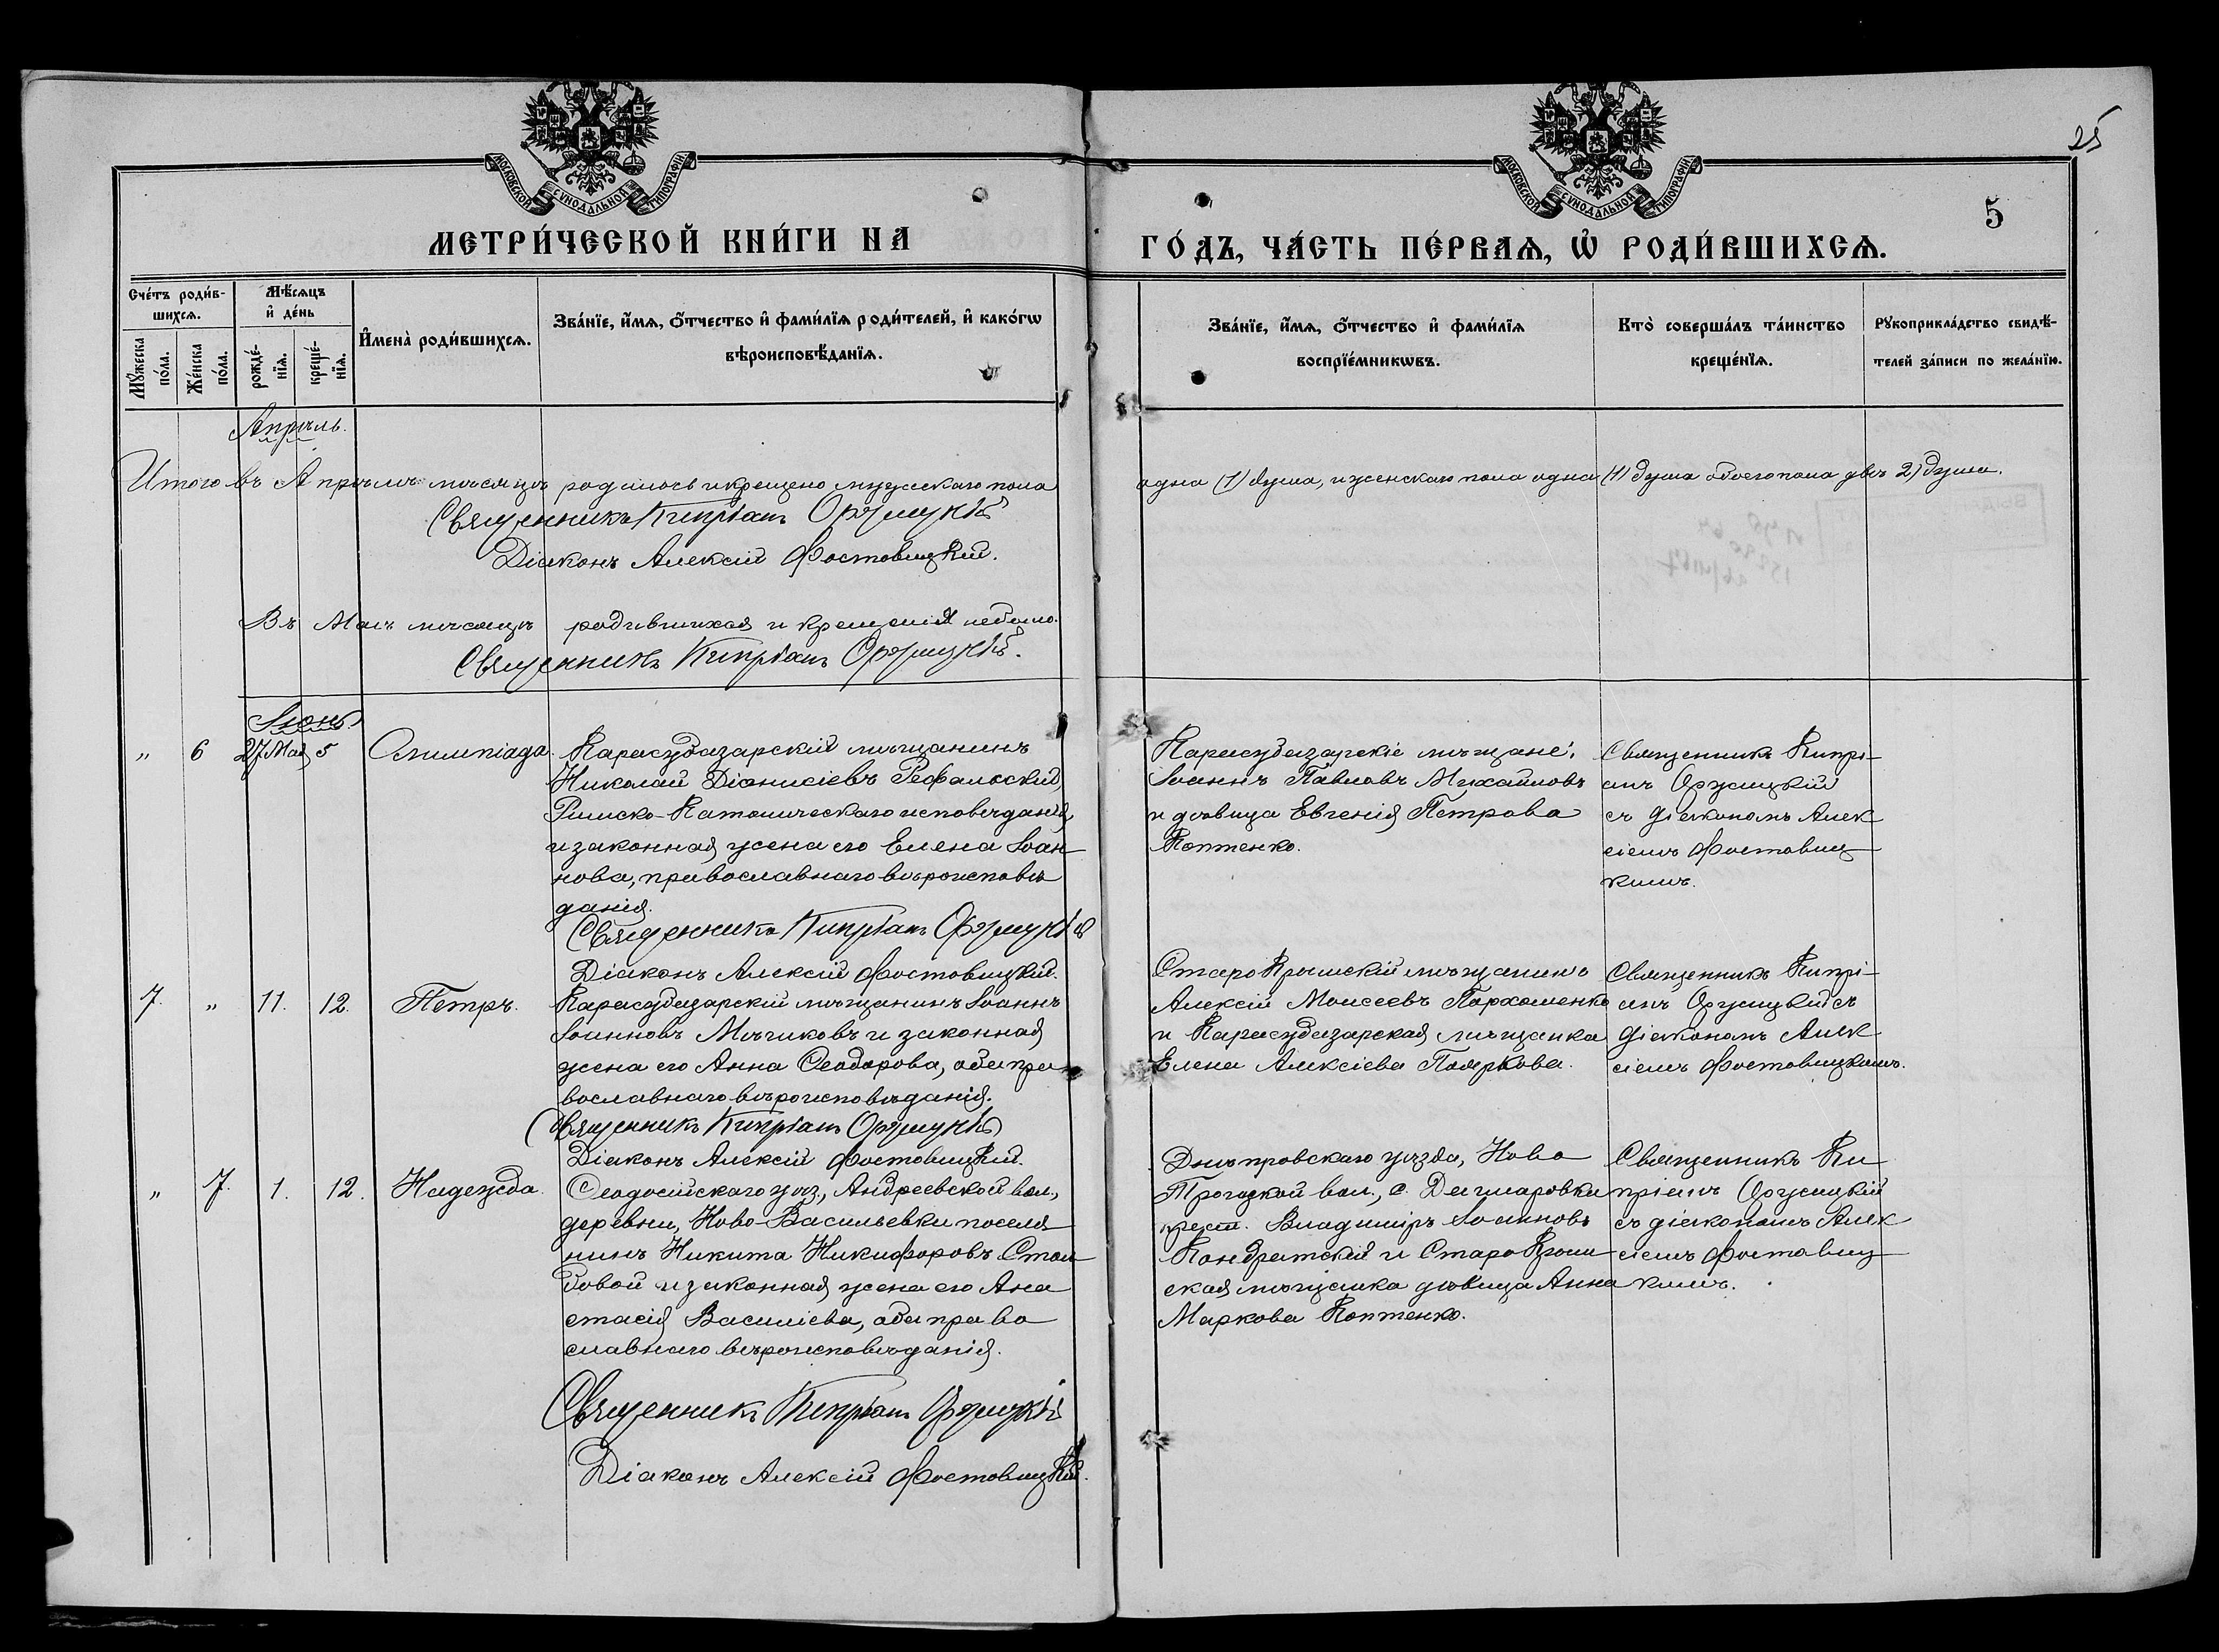 25
МОСКОВСКОЙ СѴНОДАЛЬНОЙ ТИПОГРАФІИ
МОСКОВСКОЙ СѴНОДАЛЬНОЙ ТИПОГРАФІИ
5
МЕТРИ́ЧЕСКОЙ КНИ́ГИ НА ГО́ДЪ, ЧА́СТЬ ПЕ́РВАѦ, Ѡ҆ РОДИ́ВШИХСѦ.
Сче́тъ роди́в-
шихсѧ.
Мꙋ́жеска по́ла.
Же́нска по́ла.
Мѣ́сѧцъ и҆ де́нь
рожде́-нїѧ.
креще́-нїѧ.
И҆мена̀ роди́вшихсѧ.
Зва́нїе, и҆́мѧ, ѻ҆́тчество и҆ фами́лїѧ роди́телей, и҆ како́гѡ
вѣроисповѣ́данїѧ.
Зва́нїе, и҆́мѧ, ѻ҆́тчество и҆ фами́лїѧ
воспрїе́мникѡвъ.
Кто̀ соверша́лъ та́инство
креще́нїѧ.
Рꙋкоприкла́дство свидѣ́-
телей за́писи по жела́нїю.
Апрѣль.
Итого въ Апрѣлѣ мѣсяцѣ родилось и крещено мужскаго пола одна (1) душа, и женскаго пола одна (1) душа обоего пола двѣ 2) души.
Священникъ Кипріанъ Оржицкій
Діаконъ Алексій Фостовицкій.
Въ Маѣ мѣсяцѣ родившихся и крещенія небыло.
Священникъ Кипріанъ Оржицкій.
Іюнь
" 6 27 Мая 5 Олимпіада.
Карасубазарскій мѣщанинъ
Николай Діонисіевъ Рефальскій,
Римско-Католическаго исповѣданія,
и законная жена его Елена Іоан
нова, православнаго вѣроисповѣ
данія.
Священникъ Кипріанъ Оржицкій
Діаконъ Алексій Фостовицкій.
Карасубазарскіе мѣщане:
Іоаннъ Павловъ Михайловъ
и дѣвица Евгенія Петрова
Коптенко.
Священникъ Кипрі-
анъ Оржицкій
съ діакономъ Алек
сіемъ Фостовиц-
кимъ.
7. " 11. 12. Петръ.
Карасубазарскій мѣщанинъ Іоаннъ
Іоанновъ Мѣчиковъ и законная
жена его Анна Ѳеодорова, оба пра-
вославнаго вѣроисповѣданія.
Священникъ Кипріанъ Оржицкій
Діаконъ Алексій Фостовицкій.
Старо Крымскій мѣщанинъ
Алексій Моисеевъ Пархоменко
и Карасубазарская мѣщанка
Елена Алексіева Пояркова.
Священникъ Кипрі-
анъ Оржицкій съ
діакономъ Алек
сіемъ Фостовицкимъ.
" 7. 1. 12. Надежда.
Ѳеодосійскаго уѣз., Андреевской вол.,
деревни, Ново-Васильевки поселя
нинъ Никита Никифоровъ Стол
бовой и законная жена его Ана
стасія Василіева, оба право
славнаго вѣроисповѣданія.
Священникъ Кипріанъ Оржицкій
Діаконъ Алексій Фостовицкій.
Днѣпровскаго уѣзда, Ново
Троицкой вол., с. Дегмаровки
крест. Владиміръ Іоанновъ
Кондратскій и Старо Крым-
ская мѣщанка дѣвица Анна
Маркова Коптенко.
Священникъ Ки
пріанъ Оржицкій
съ діакономъ Алек
сіемъ Фостовиц-
кимъ.